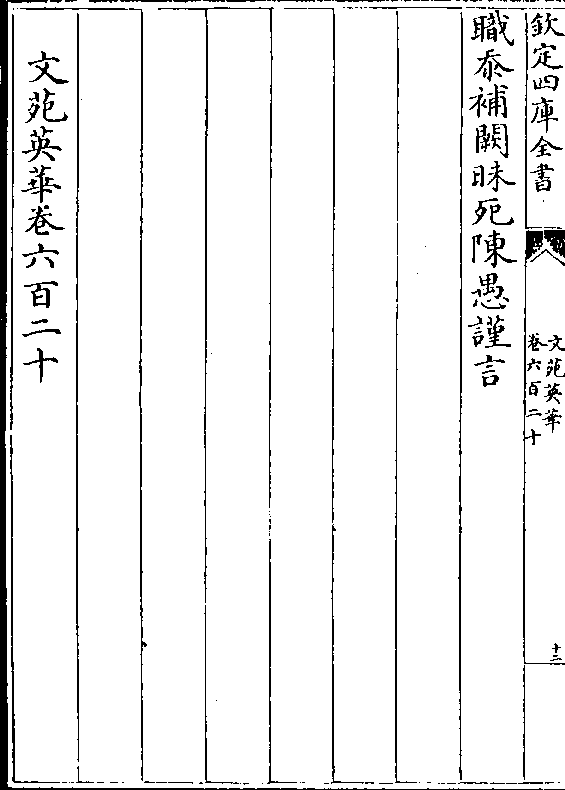 欽定四庫全書
文苑英華
卷六百二十
十二
職忝補闕昧死陳愚謹言
文苑英華卷六百二十